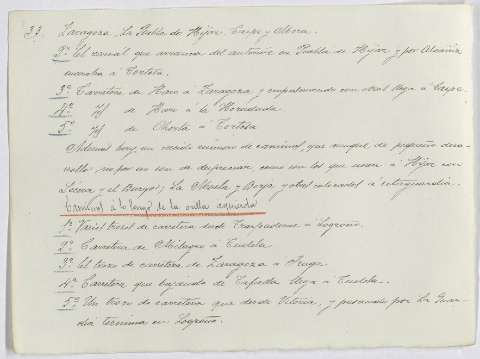 33. Zaragoza, La Puebla de Hijar, Caspe y
2º El ramal que arranca del anterior en Puebla de Hijar y por Alcañiz
marcha á Tortosa.
3º Carretera de Haro á Zaragoza, y empalmando con otras llega á Caspe.
4º Id de Haro á la
5º Id de Cherta á Tortosa
Ademas hay un crecido número de caminos, que aunque de pequeño desa-
rrollo no por eso son de despreciar, como son los que unen á Hijar con
Lécera y el Burgo; La Almola y Borja y otros colocados á retaguardia.
Caminos á lo largo de la orilla izquierda
1º Varios trozos de carretera desde á Logroño.
2º Carretera de Milagro á Tudela
3º El trozo de carretera de Zaragoza á
4º Carretera que bajando de Tafalla llega á Tudela.
5º Un trozo de carretera que desde Vitoria, y pasando por La Guar-
dia termina en Logroño.